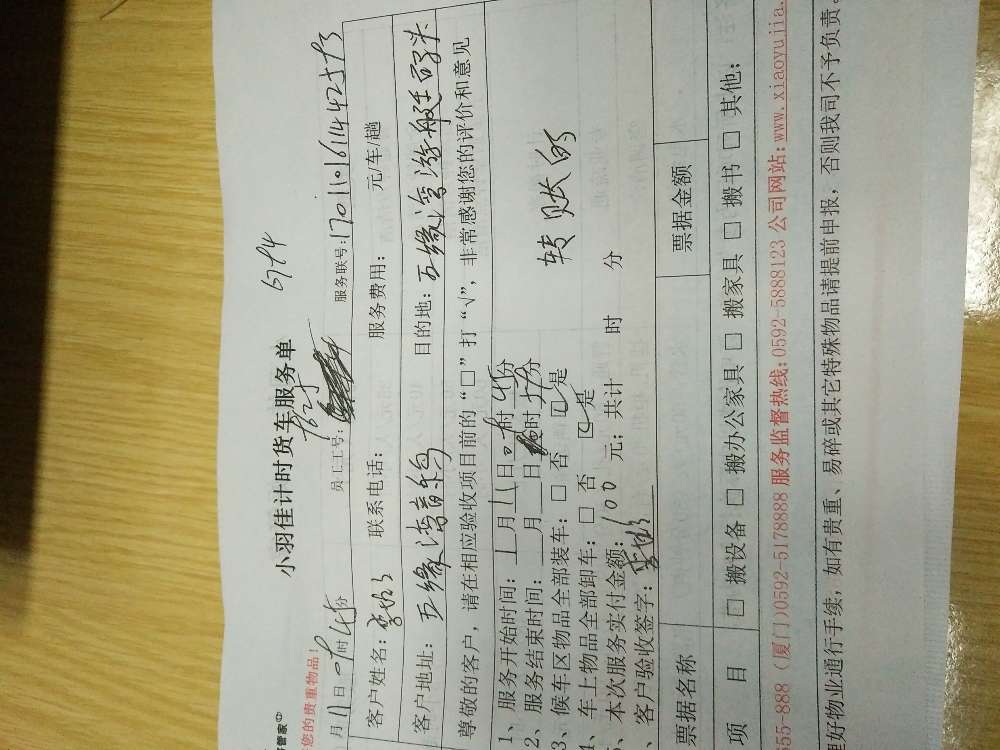 管家
小羽佳计时货车服务单
您的贵重物品!
月11日 时45分 员工工号: 服务联号:
客户姓名: 联系电话: 服务费用: 元/车/趟
客户地址: 五缘湾 目的地: 五缘湾游艇码头
尊敬的客户,请在相应验收项目前的“□”打“√”,非常感谢您的评价和意见
1、服务开始时间: 1月11日 时45分
2、服务结束时间: 月 日 时 分
3、候车区物品全部装车: □ 否 □是
4、车上物品全部卸车: □ 否 □是
、本次服务实付金额: 100 元; 共计 时 分
、客户验收签字:
转账
票据名称 票据金额
项 目 □ 搬设备 □ 搬办公家具 □ 搬家具 □ 搬书 □ 其他:
55-888 (厦门)0592-5178888 服务监督热线:0592-5888123 公司网站:www.xiaoyujia.
理好物业通行手续,如有贵重、易碎或其它特殊物品请提前申报,否则我司不予负责。